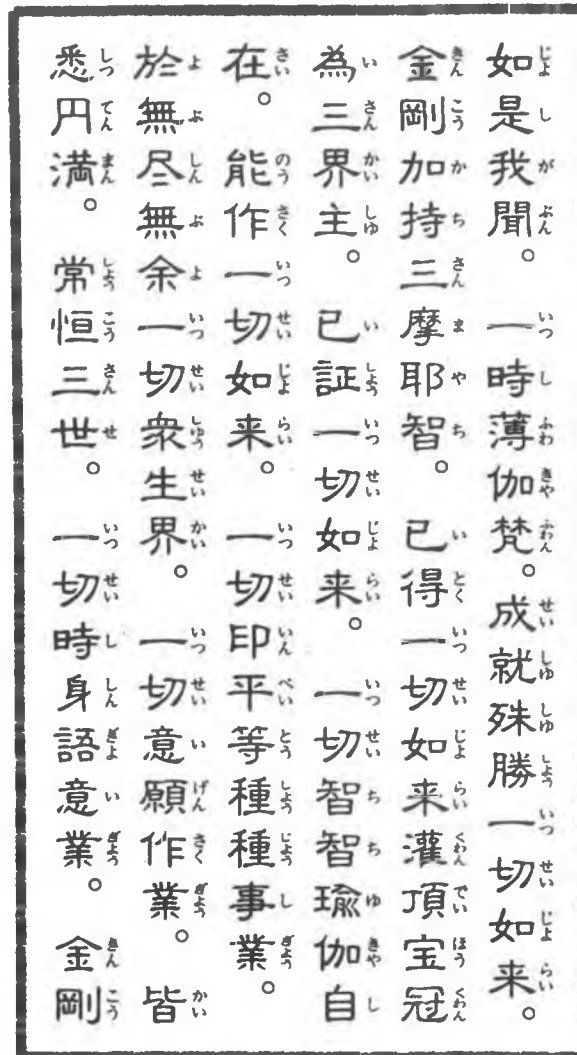 如是我聞。一時薄伽梵。成就殊勝一切如来。
金剛加持三摩耶智。已得一切如来灌頂宝冠
為三界主。已証一切如来。一切智智瑜伽自
在。能作一切如来。一切印平等種種事業。
於無尽無余一切衆生界。一切意願作業。皆
悉円満。常恒三世。一切時身語意業。金剛